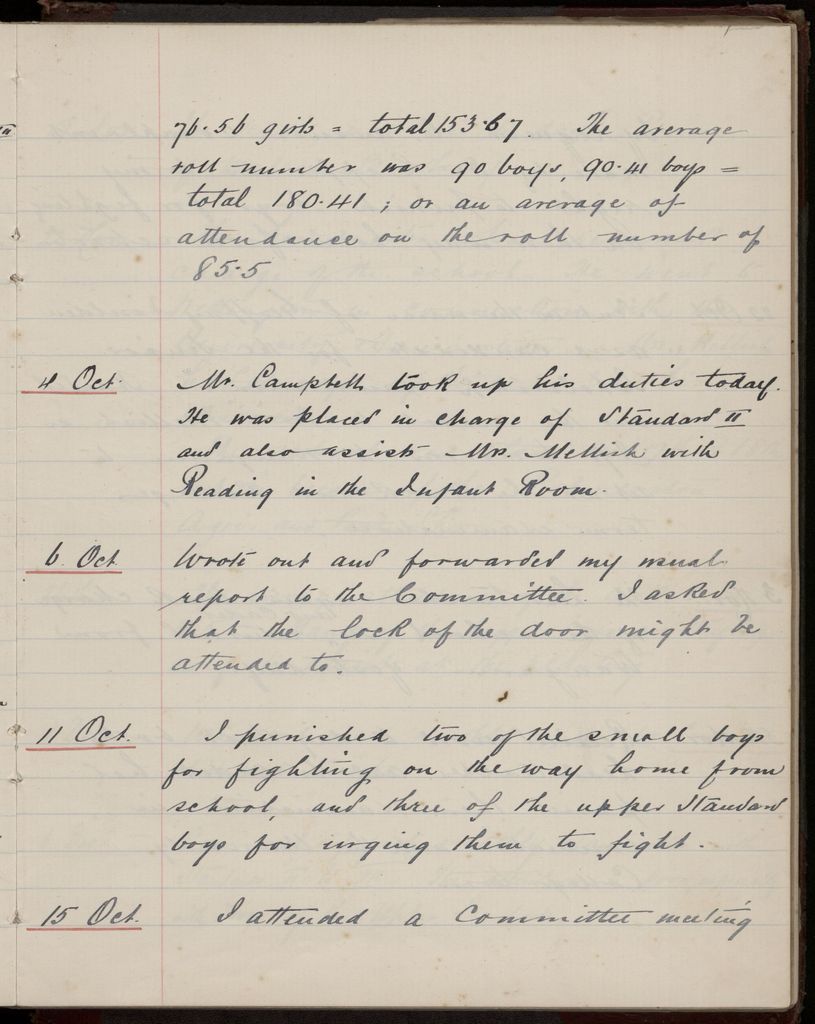 76.56 girls = total 153.67. The average
roll number was 90 boys, 90.41 boys =
total 180.41; or an average of
attendance on the roll number of
85.5
4 Oct. Mr. Campbell took up his duties today.
He was placed in charge of Standard II
and also assists Mrs. Mellish with
Reading in the Infant Room.
6. Oct Wrote out and forwarded my usual
report to the Committee. I asked
that the lock of the door might be
attended to.
11 Oct. I punished two of the small boys
for fighting on the way home from
school, and three of the upper Standard
boys for urging them to fight.
15 Oct. I attended a Committee meeting